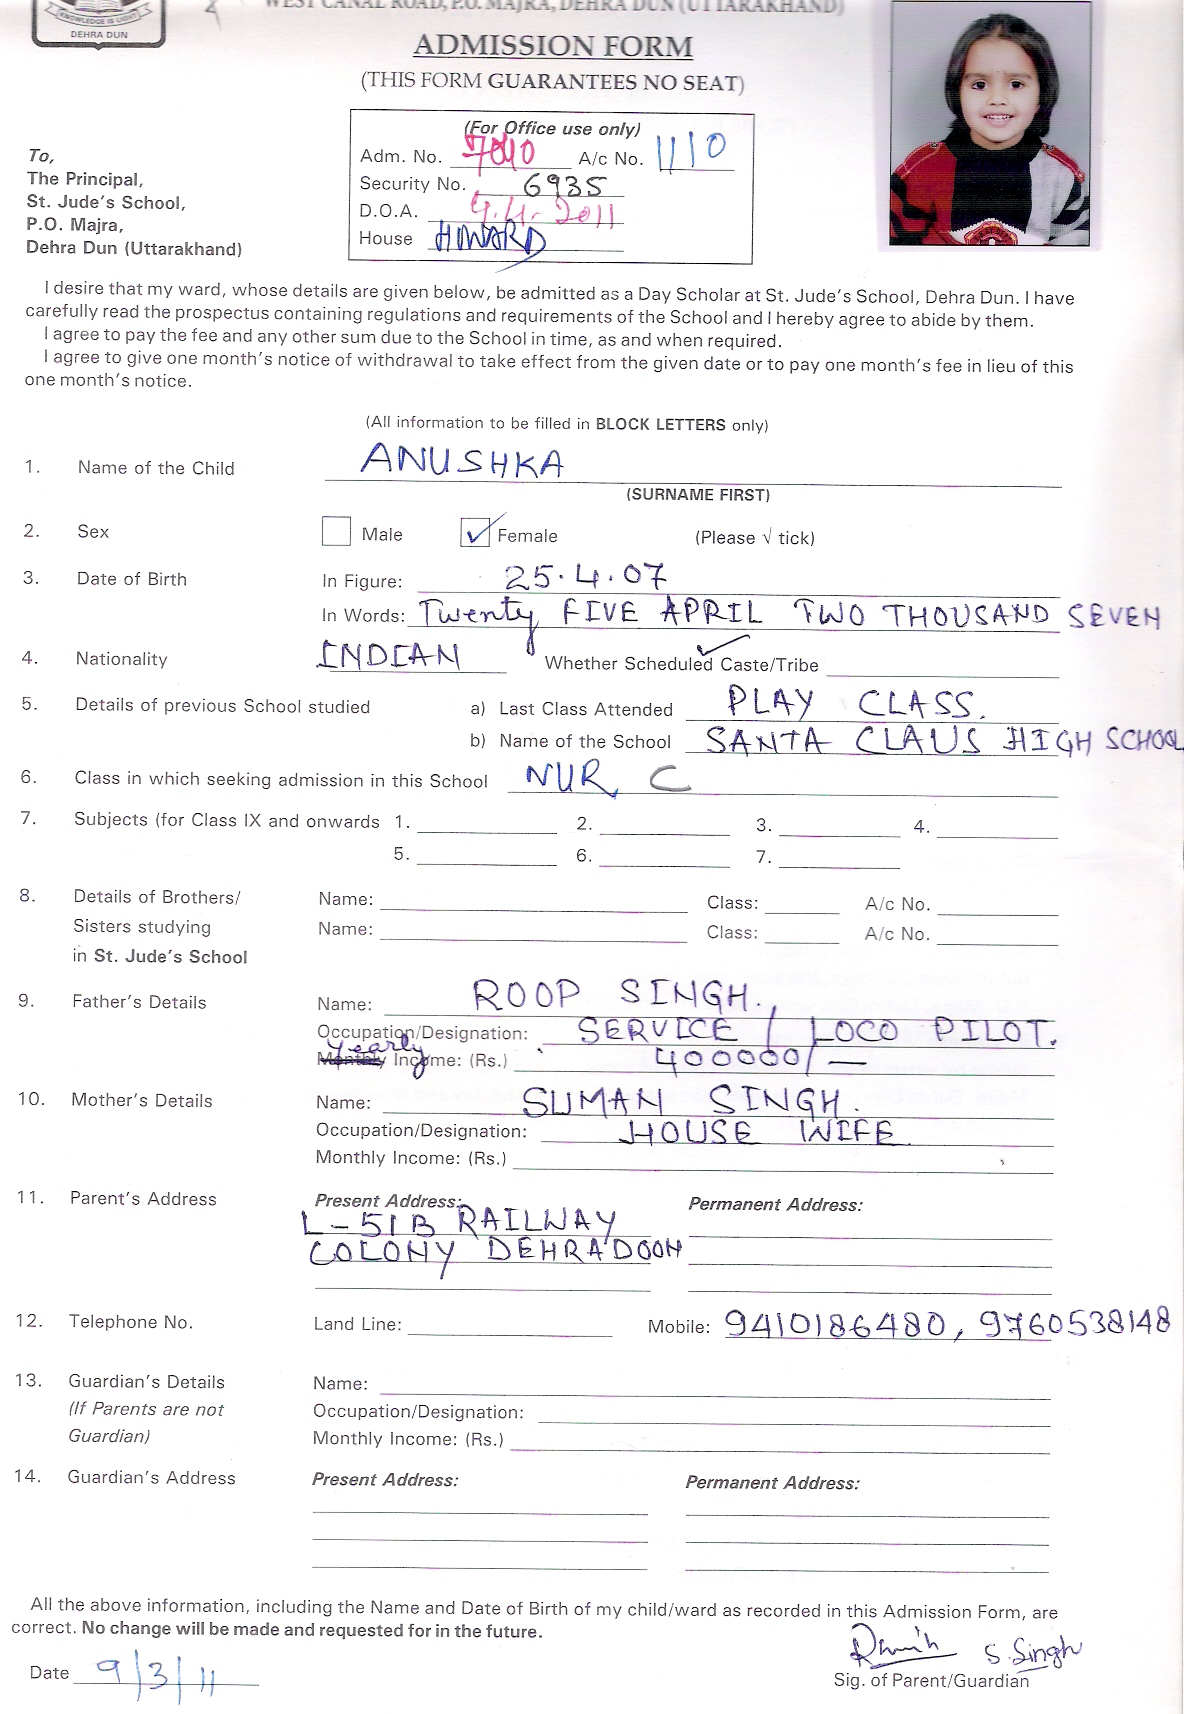 KNOWLEDGE IS LIGHT
DEHRA DUN
WEST CANAL ROAD, P.O. MAJRA, DEHRA DUN (UTTARAKHAND)
ADMISSION FORM
(THIS FORM GUARANTEES NO SEAT)
(For Office use only)
Adm. No. 7040 A/c No. 1110
Security No. 6935
D.O.A. 4.4.2011
House HOWARD
To,
The Principal,
St. Jude's School,
P.O. Majra,
Dehra Dun (Uttarakhand)
I desire that my ward, whose details are given below, be admitted as a Day Scholar at St. Jude's School, Dehra Dun. I have
carefully read the prospectus containing regulations and requirements of the School and I hereby agree to abide by them.
I agree to pay the fee and any other sum due to the School in time, as and when required.
I agree to give one month's notice of withdrawal to take effect from the given date or to pay one month's fee in lieu of this
one month's notice.
(All information to be filled in BLOCK LETTERS only)
1. Name of the Child ANUSHKA
(SURNAME FIRST)
2. Sex Male Female (Please √ tick)
3. Date of Birth In Figure: 25.4.07
In Words: Twenty FIVE APRIL TWO THOUSAND SEVEN
4. Nationality INDIAN Whether Scheduled Caste/Tribe
5. Details of previous School studied a) Last Class Attended PLAY CLASS.
b) Name of the School SANTA CLAUS HIGH SCHOOL
6. Class in which seeking admission in this School NUR C
7. Subjects (for Class IX and onwards 1. 2. 3. 4.
5. 6. 7.
8. Details of Brothers/ Name: Class: A/c No.
Sisters studying Name: Class: A/c No.
in St. Jude's School
9. Father's Details Name: ROOP SINGH.
Occupation/Designation: SERVICE / LOCO PILOT.
Yearly Monthly Income: (Rs.) 400000/—
10. Mother's Details Name: SUMAN SINGH.
Occupation/Designation: HOUSE WIFE
Monthly Income: (Rs.)
11. Parent's Address Present Address: Permanent Address:
L-51B RAILWAY
COLONY DEHRADOON
12. Telephone No. Land Line: Mobile: 9410186480, 9760538148
13. Guardian's Details Name:
(If Parents are not Occupation/Designation:
Guardian) Monthly Income: (Rs.)
14. Guardian's Address Present Address: Permanent Address:
All the above information, including the Name and Date of Birth of my child/ward as recorded in this Admission Form, are
correct. No change will be made and requested for in the future.
S. Singh
Date 9/3/11 Sig. of Parent/Guardian